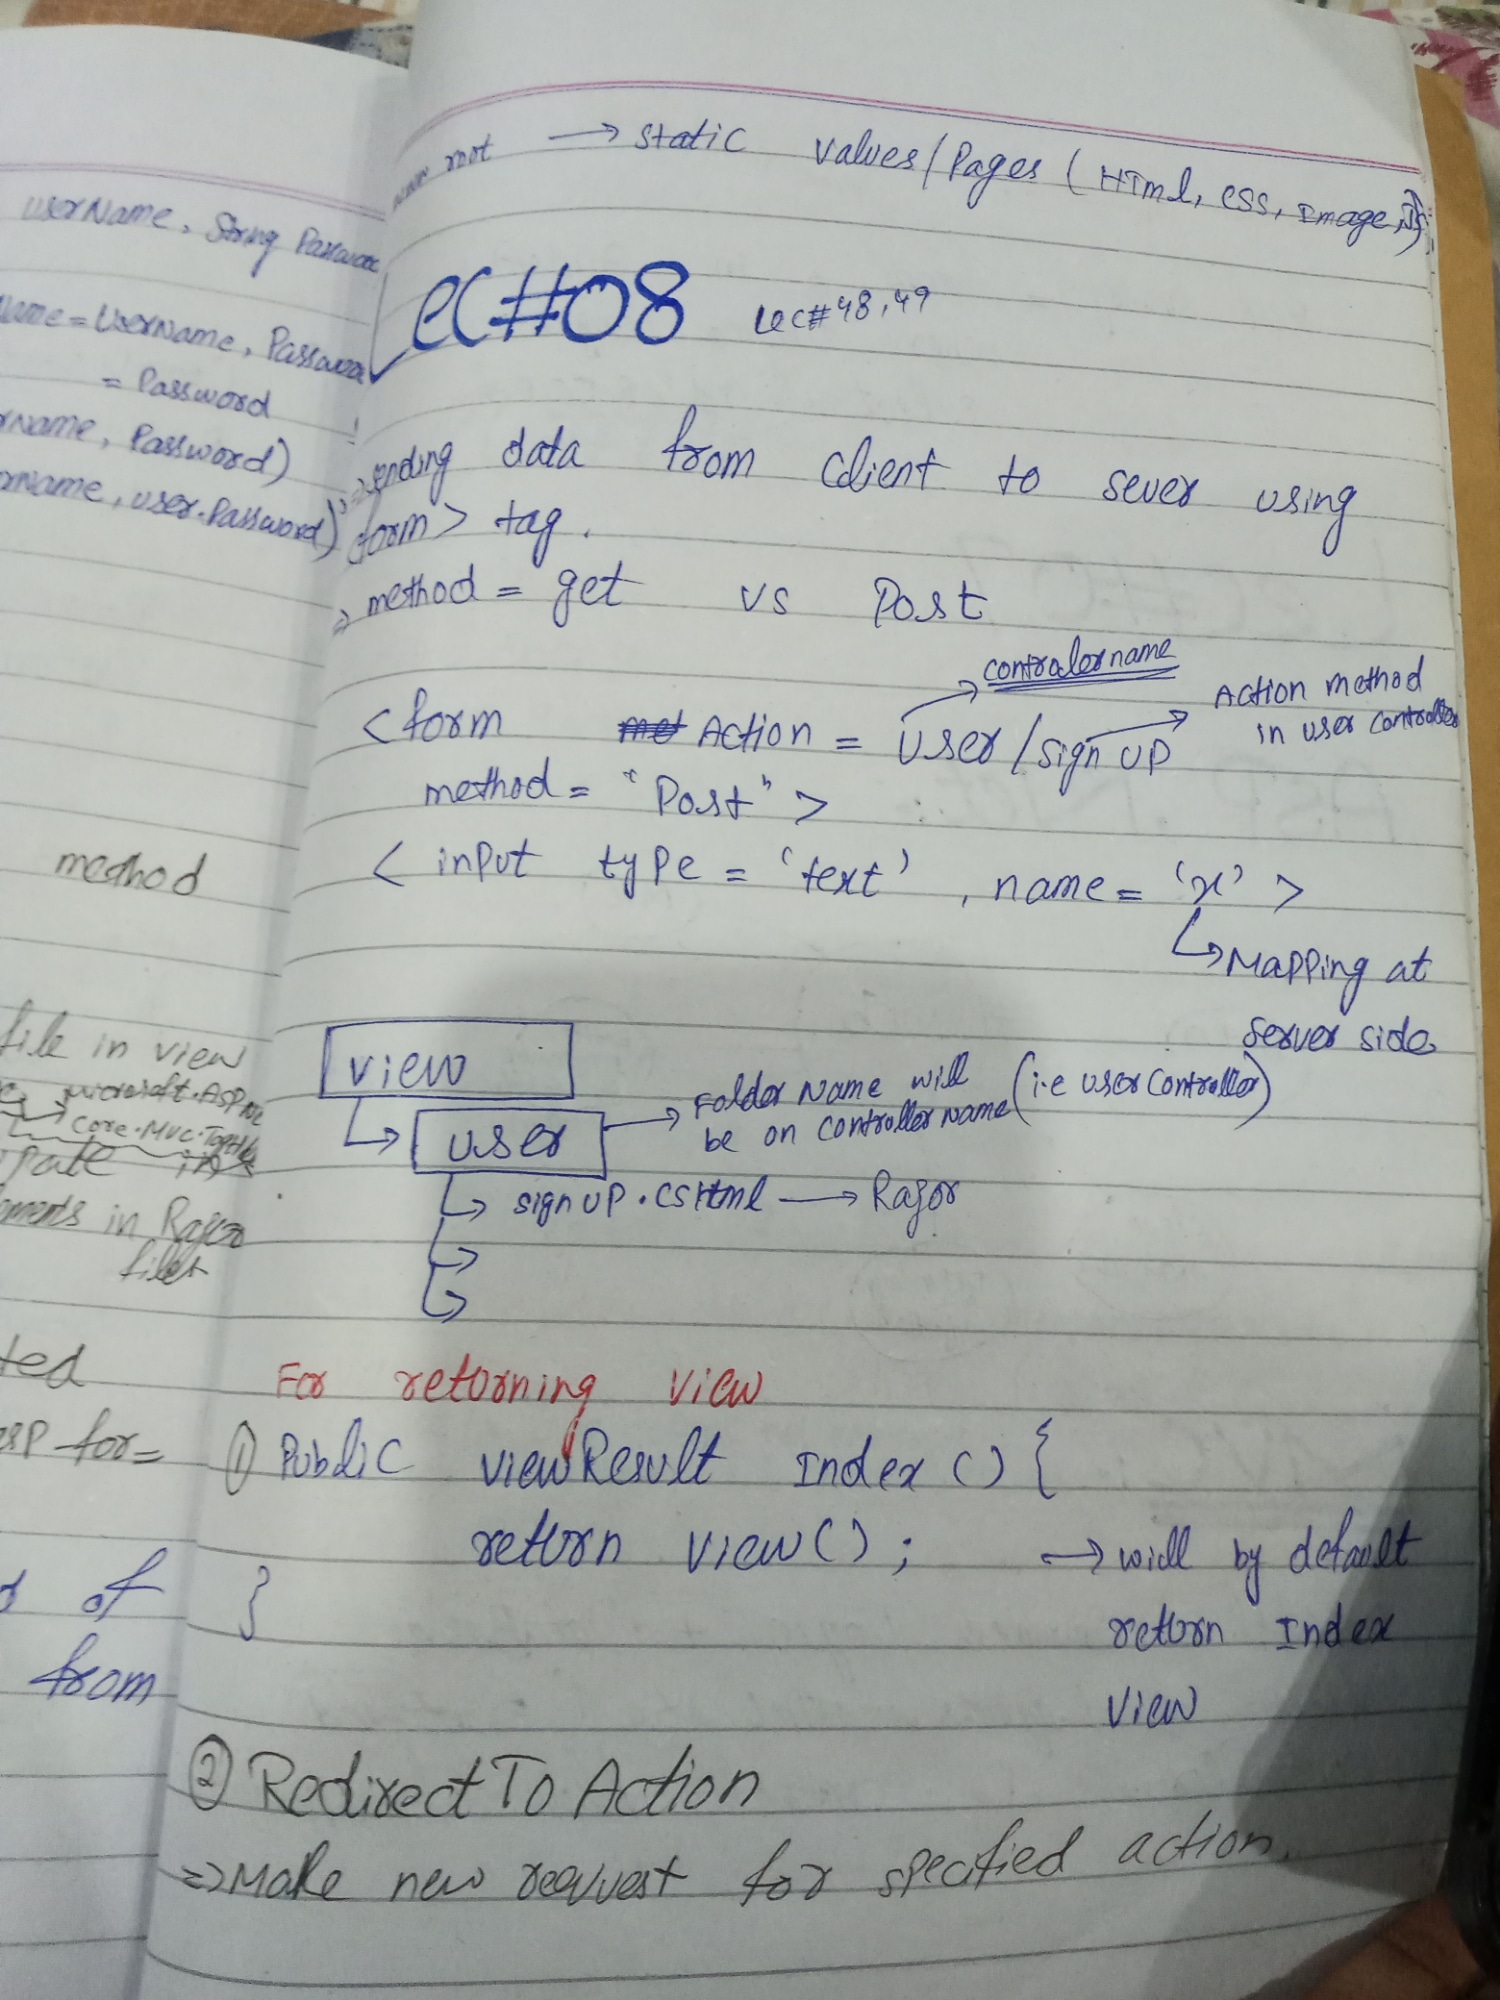 userName, String Password
Name = UserName, Password
= Password
rName, Password)
rname, user.Password)
method
file in view
Microsoft.ASPNe
Core.Mvc.TagHel
in
ments in Rajor
files
ted
asp-for=
of
from
root → static values/Pages (HTml, CSS, Image, JS)
Lec#08 Lec#48,49
⇒ sending data from client to sever using
form> tag.
⇒ method = get vs Post
controlername
Action method
in user controller
<form Action = User/sign UP
method = "Post">
<input type = 'text', name = 'x'>
↳ Mapping at
server side
view
↳ user → Folder Name will
be on controller name (i.e user Controller)
↳ sign UP.CSHtml → Rajor
For returning view
① Public viewResult Index () {
return view(); → will by default
} return Index
view
② RedirectToAction
⇒ Make new request for specified action.